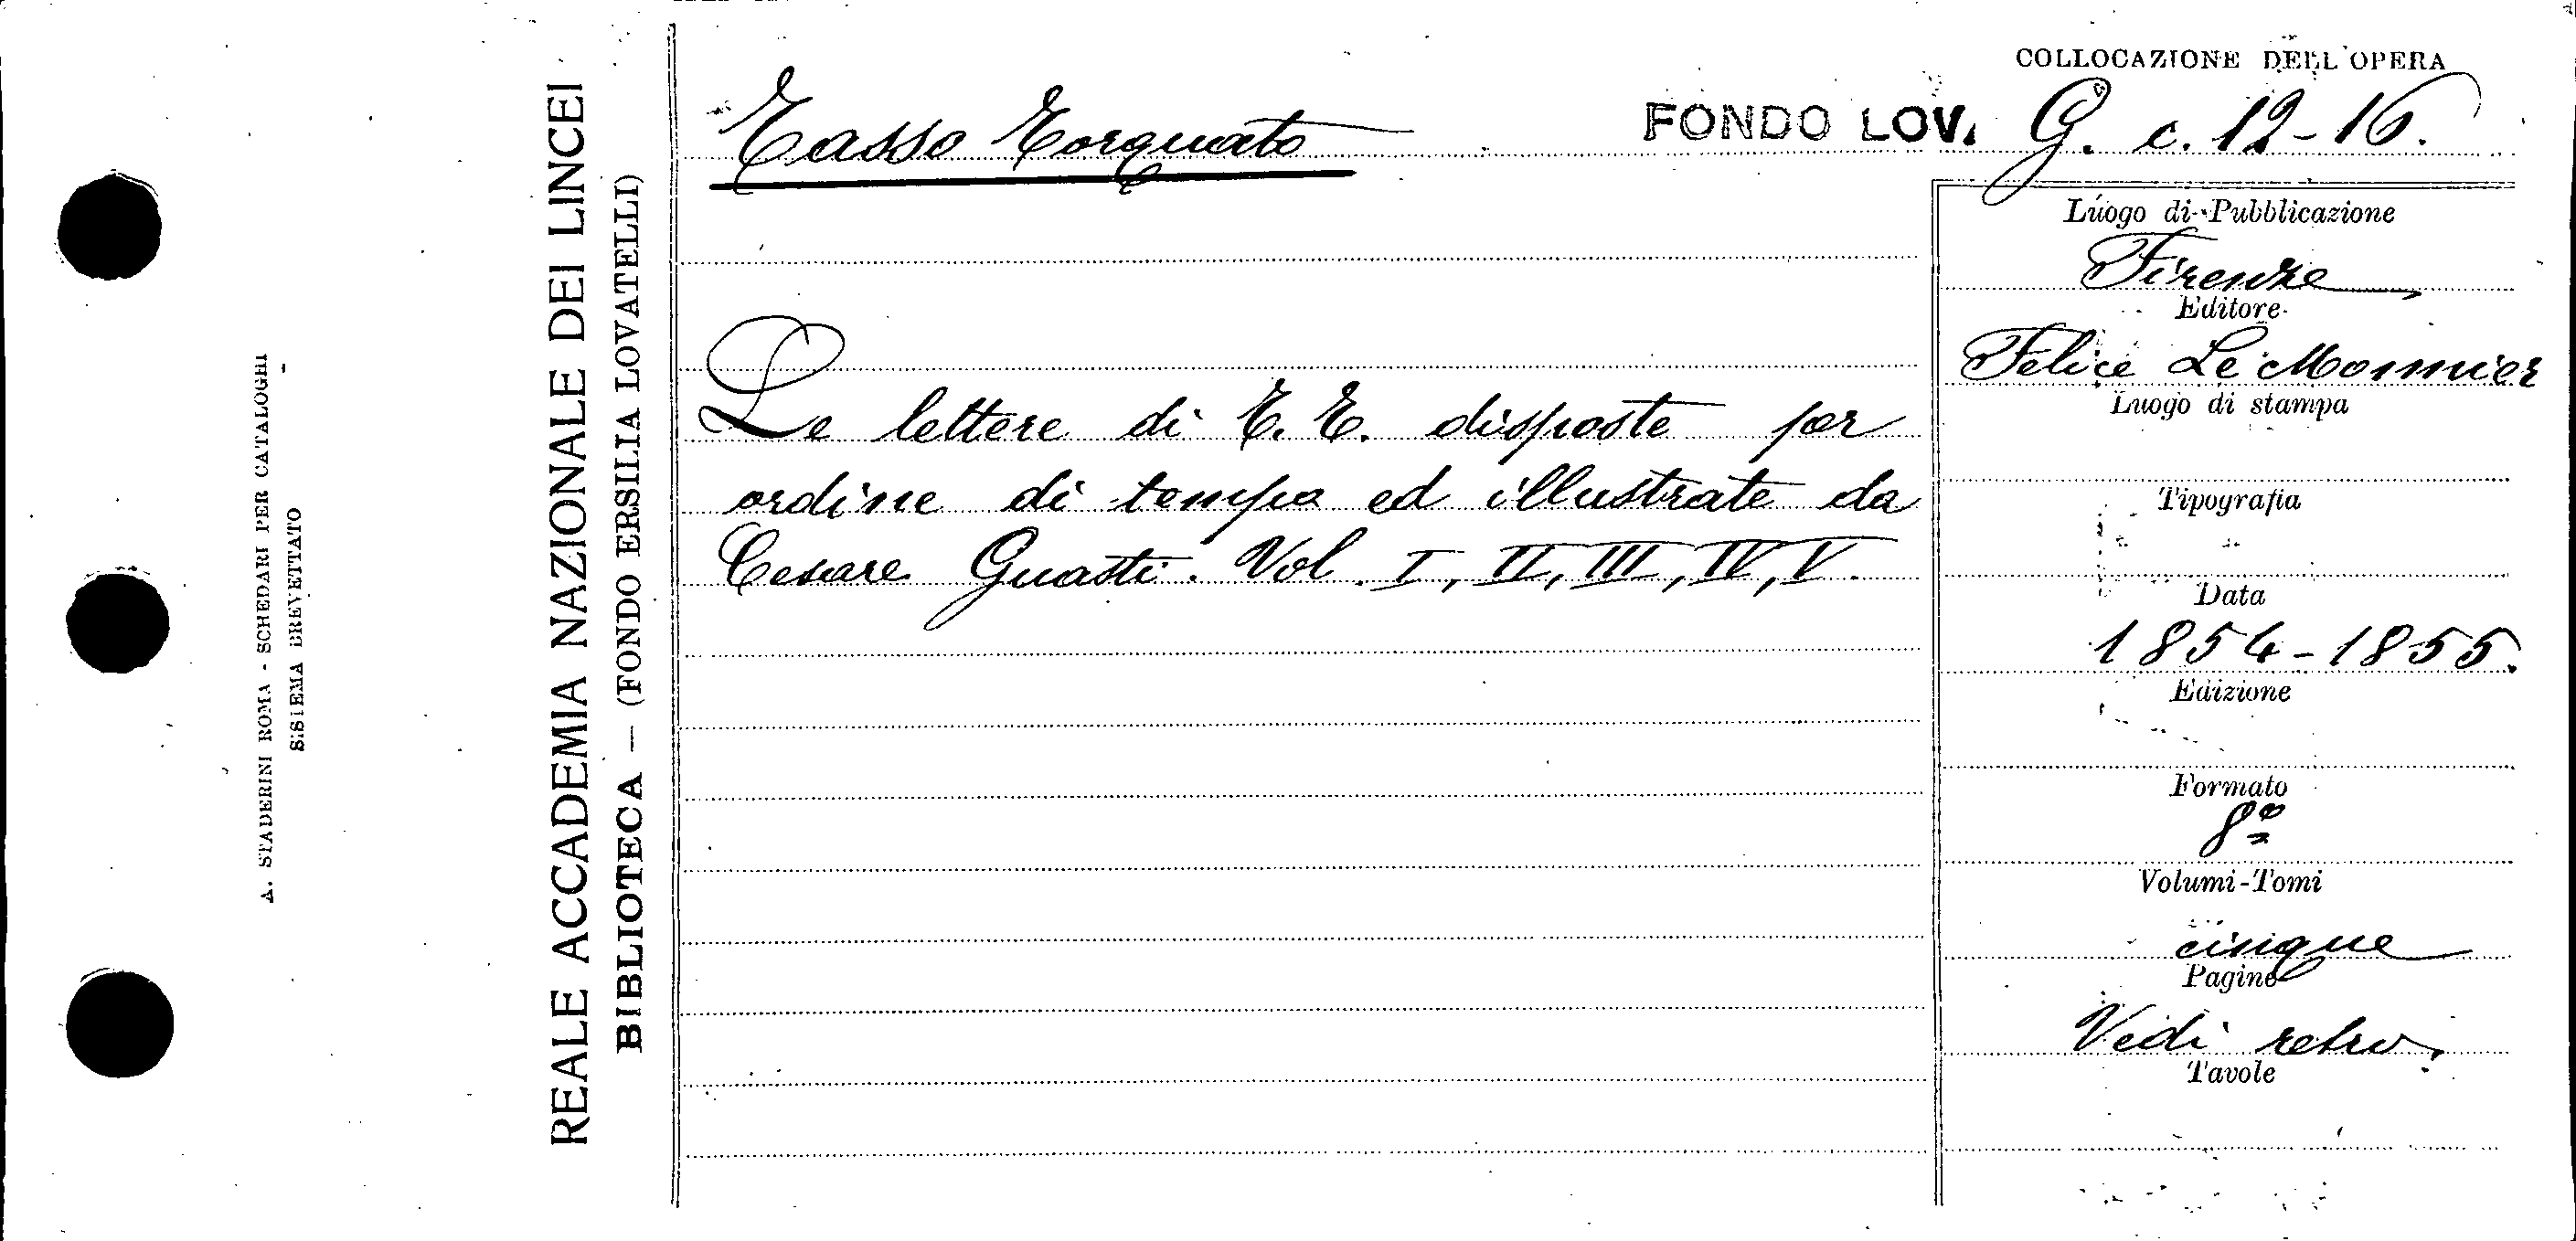 A. STADERINI ROMA - SCHEDARI PER CATALOGHI
SISTEMA BREVETTATO
REALE ACCADEMIA NAZIONALE DEI LINCEI
BIBLIOTECA — (FONDO ERSILIA LOVATELLI)
COLLOCAZIONE DELL'OPERA
FONDO LOV. G. c. 12-16.
Tasso Torquato
Le lettere di T. T. disposte per
ordine di tempo ed illustrate da
Cesare Guasti. Vol. I, II, III, IV, V.
Luogo di Pubblicazione
Firenze
Editore
Felice Le Monnier
Luogo di stampa
Tipografia
Data
1854-1855.
Edizione
Formato
8º
Volumi-Tomi
cinque
Pagine
Vedi retro.
Tavole